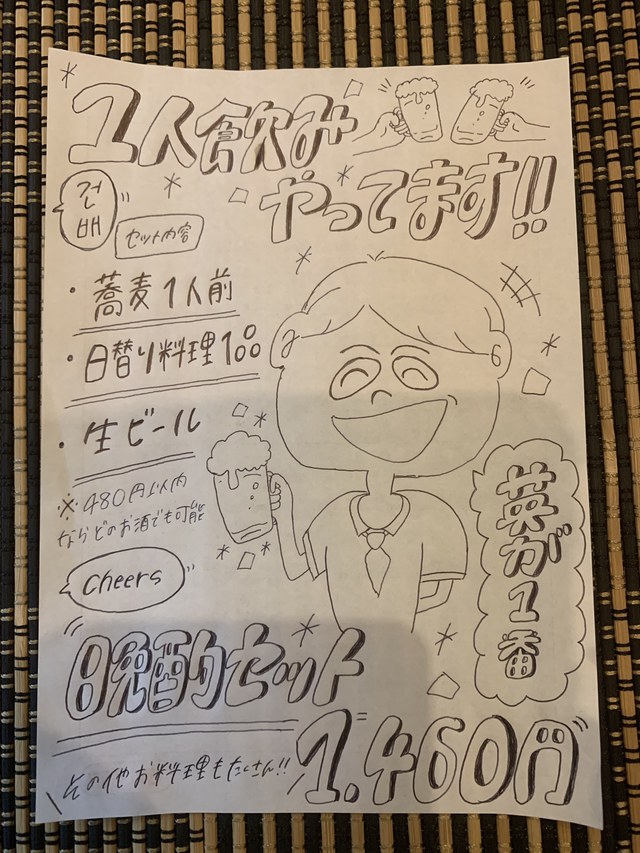 1人飲み
やってます!!
건
배
セット内容
・蕎麦1人前
・日替り料理1品
・生ビール
※480円以内
ならどのお酒でも可能
cheers
英が1番
晩酌セット
1.460円
その他お料理もたくさん!!